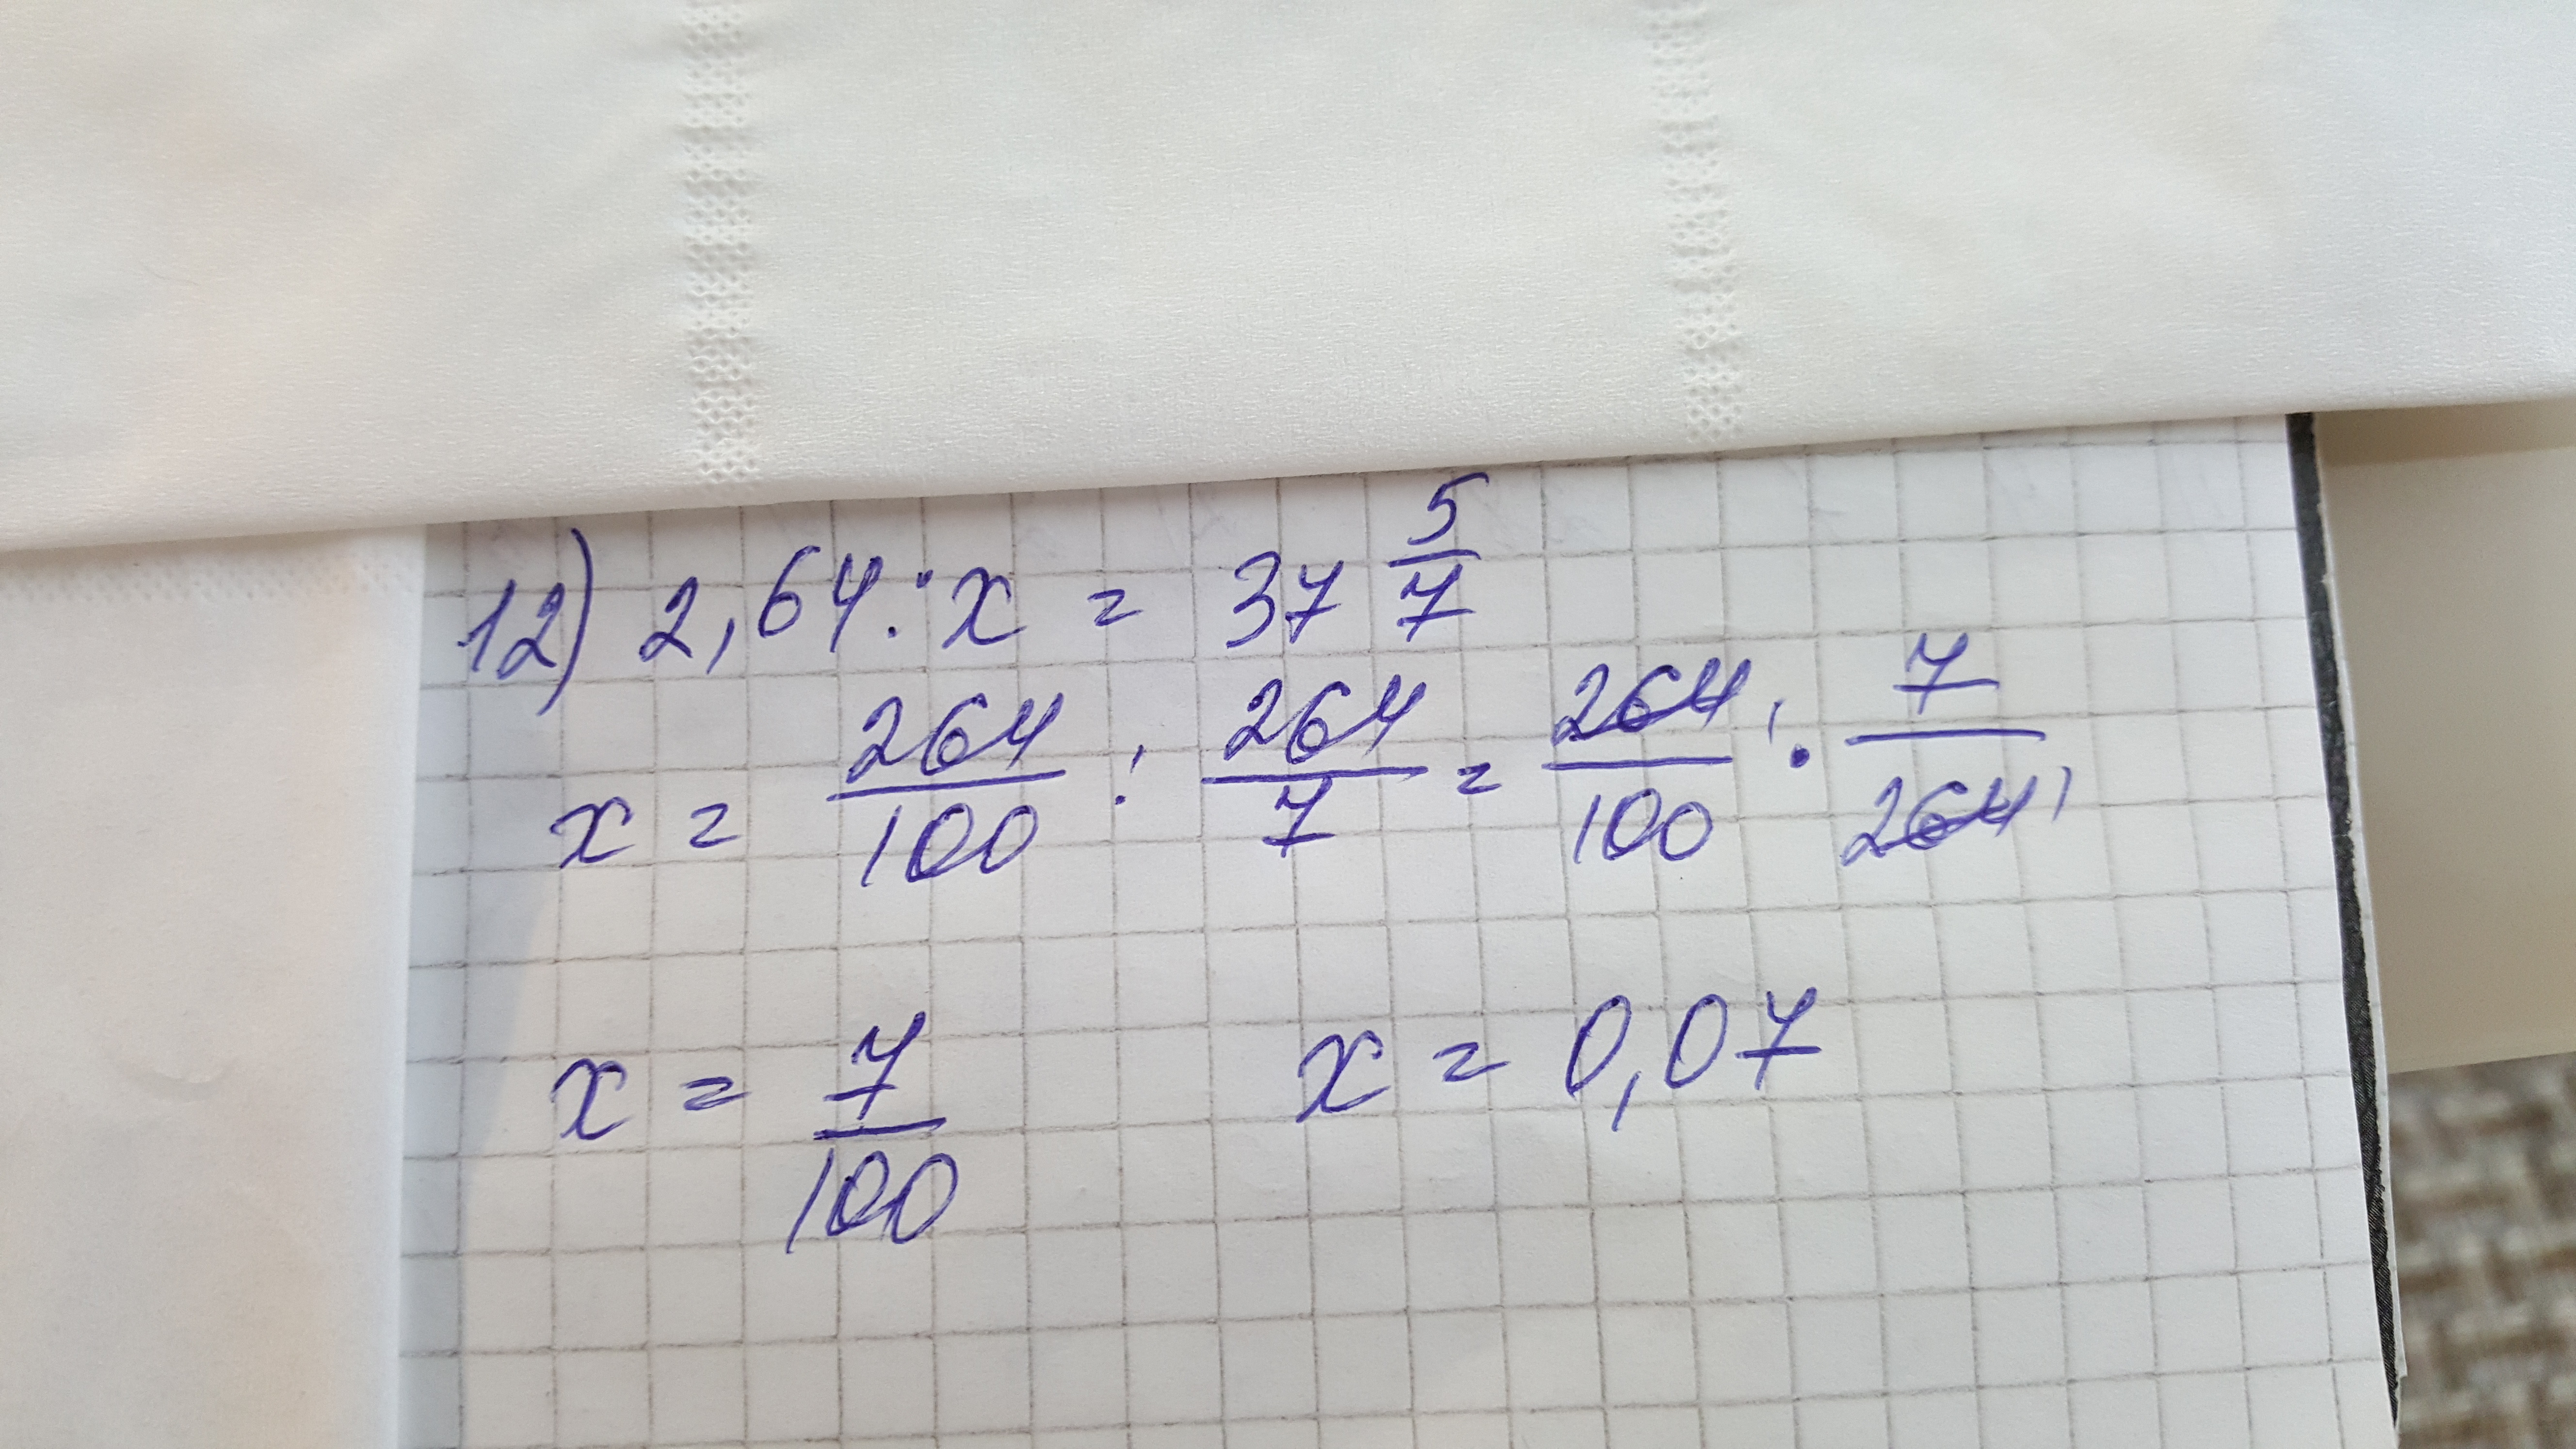 12) 2,64 : x = 37 5/7
x = 264/100 : 264/7 = 264/100 · 7/264
x = 7/100 x = 0,07